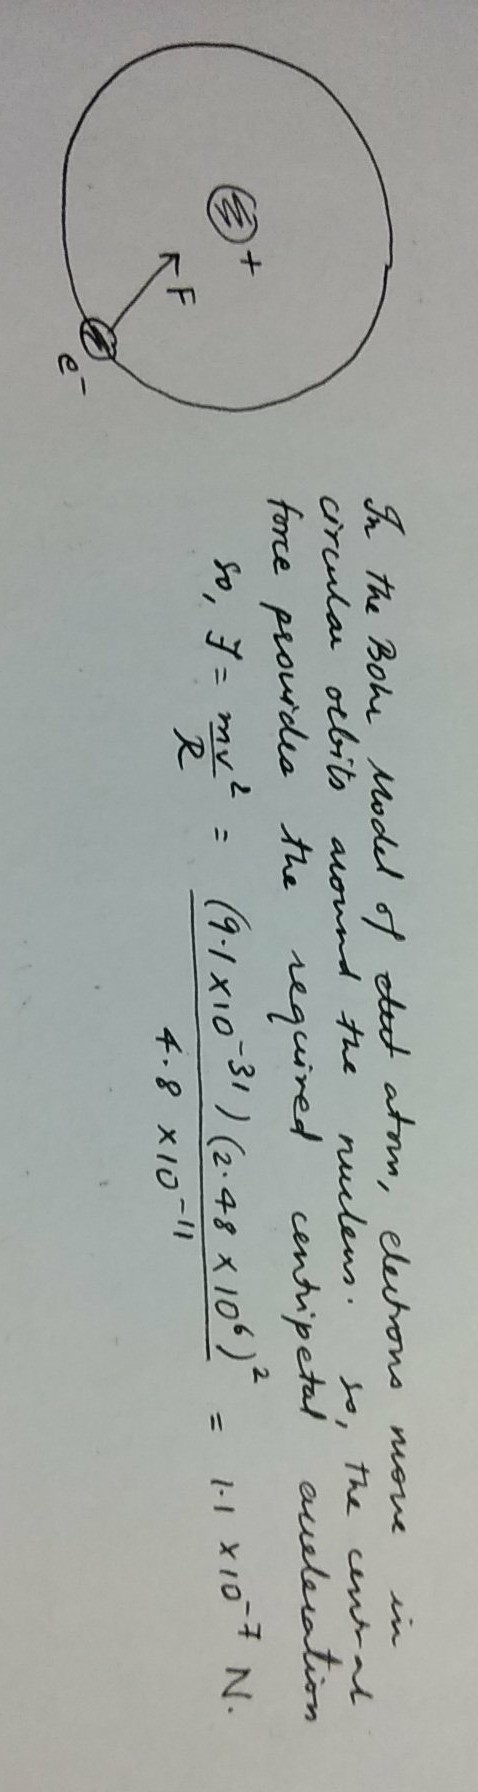 +
F
e⁻
In the Bohr Model of atom, electrons move in
circular orbits around the nucleus. so, the central
force provides the required centripetal acceleration
so, F = mv²/R = (9.1 x 10⁻³¹) (2.48 x 10⁶)² / 4.8 x 10⁻¹¹ = 1.1 x 10⁻⁷ N.